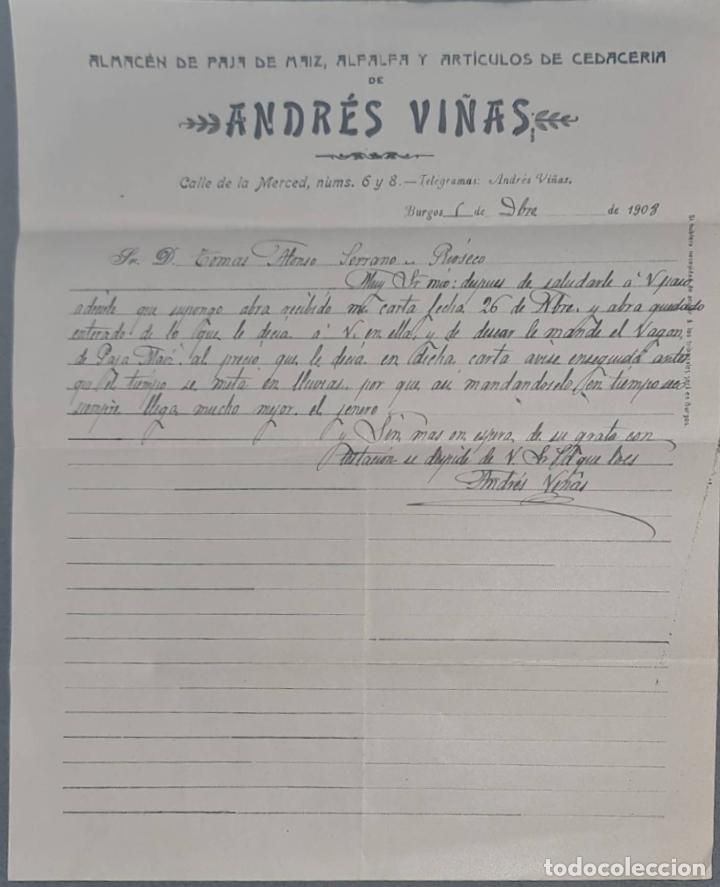 ALMACÉN DE PAJA DE MAIZ, ALFALFA Y ARTÍCULOS DE CEDACERIA
DE
ANDRÉS VIÑAS
Calle de la Merced, núms. 6 y 8.—Telegramas: Andrés Viñas.
Burgos 1 de Dbre de 1908
Sr. D. Tomas Alonso Serrano Rioseco
Muy Sr mio: despues de saludarle á V. paso
adecirle que supongo abra recibido mi carta fecha 26 de Nbre. y abra quedado
enterado de lo que le decia á V. en ella, y de desear le mande el Vagon
de Paja Maiz al precio que le decia en dicha carta avise enseguida antes
que el tiempo se meta en lluvias. por que asi mandandoselo en tiempo seco
siempre llega mucho mejor el jenero
y Sin mas en espera de su grata con
testación se despide de V. Sr
Andrés Viñas
todocoleccion